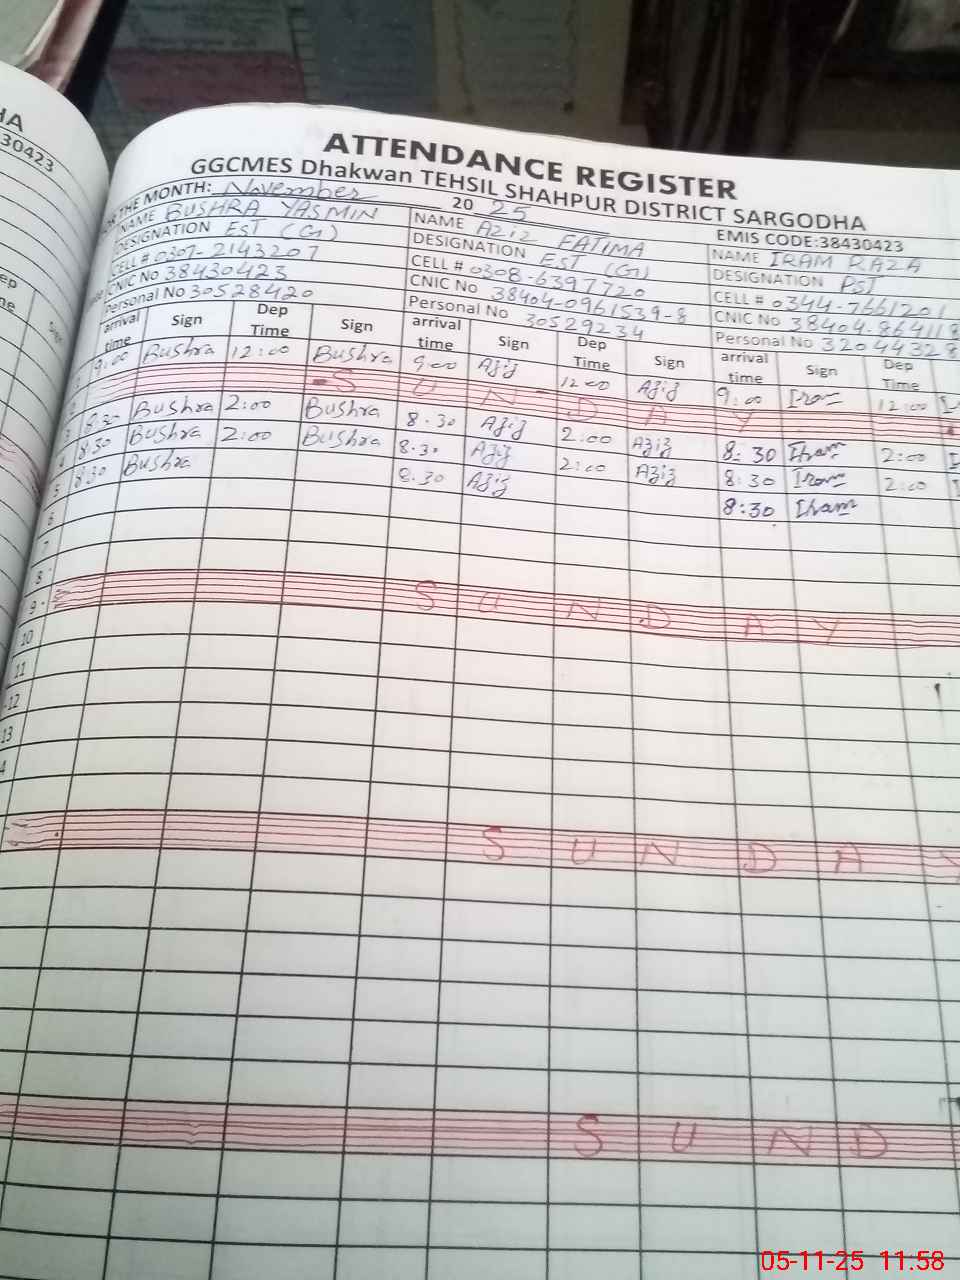 HA
30423
ATTENDANCE REGISTER
GGCMES Dhakwan TEHSIL SHAHPUR DISTRICT SARGODHA
THE MONTH: November 20 25
EMIS CODE:38430423
NAME BUSHRA YASMIN
DESIGNATION EST (G)
CELL # 0307-2143207
CNIC No 38430423
Personal No 30528420
NAME AZIZ FATIMA
DESIGNATION EST (G)
CELL # 0308-6397720
CNIC No 38404-0961539-8
Personal No 30529234
NAME IRAM RAZA
DESIGNATION PST
CELL # 0344-7661201
CNIC No 38404-864118
Personal No 32044328
arrival time Sign Dep Time Sign arrival time Sign Dep Time Sign arrival time Sign Dep Time
1 9:00 Bushra 12:00 Bushra 9:00 Aziz 12:00 Aziz 9:00 Iram 12:00
2 SUNDAY
3 8:30 Bushra 2:00 Bushra 8.30 Aziz 2:00 Aziz 8:30 Iram 2:00
4 8:30 Bushra 2:00 Bushra 8.30 Aziz 2:00 Aziz 8:30 Iram 2:00
5 8:30 Bushra 8.30 Aziz 8:30 Iram
6
7
8
9 SUNDAY
10
11
12
13
4
SUNDAY
SUND
05-11-25 11:58